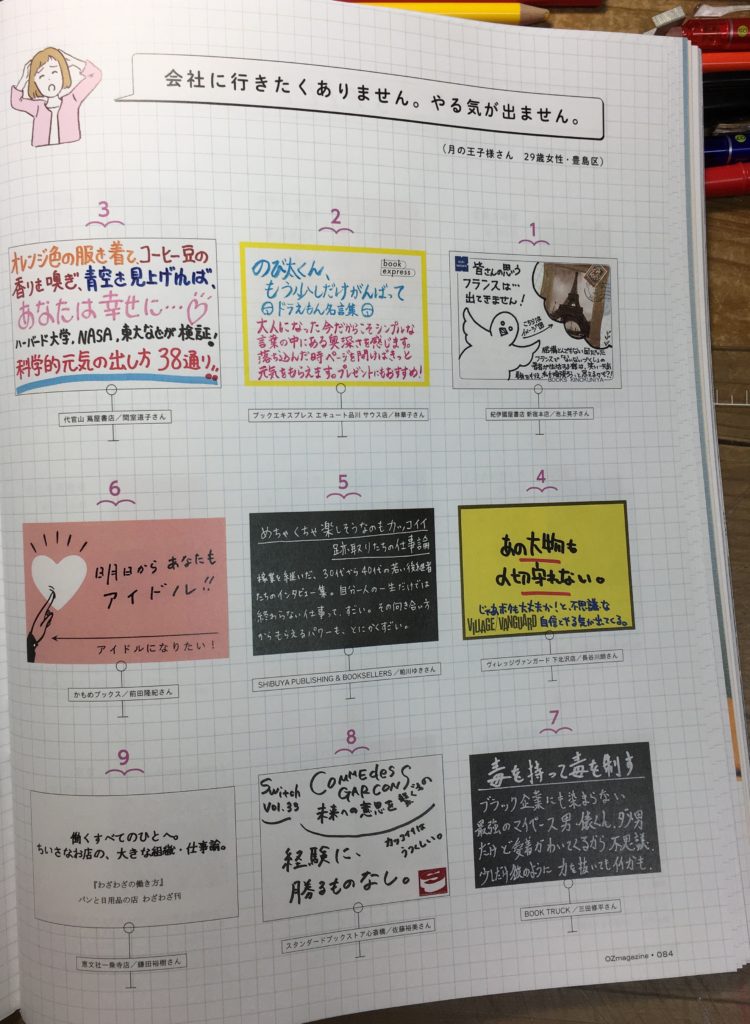 会社に行きたくありません。やる気が出ません。
（月の王子様さん　29歳女性・豊島区）
1
皆さんの思う
フランスは…
出てきません！
こちらは
イメージ図
BOOKS KINOKUNIYA
紀伊國屋書店 新宿本店／池上晃子さん
2
のび太くん、
もう少しだけがんばって
ドラえもん名言集
book
express
大人になった今だからこそシンプルな
言葉の中にある奥深さを感じます。
落ち込んだ時ページを開けばきっと
元気をもらえます。プレゼントにもおすすめ！
ブックエキスプレス エキュート品川 サウス店／林華子さん
3
オレンジ色の服を着て、コーヒー豆の
香りを嗅ぎ、青空を見上げれば、
あなたは幸せに…
ハーバード大学、NASA、東大などが検証！
科学的元気の出し方 38通り!!
代官山 蔦屋書店／間室道子さん
4
あの大物も
〆切守れない。
じゃあボクも大丈夫か！と、不思議な
自信とやる気が出てくる。
VILLAGE/VANGUARD
ヴィレッジヴァンガード 下北沢店／長谷川朗さん
5
めちゃくちゃ楽しそうなのもカッコイイ
跡取りたちの仕事論
稼業を継いだ、30代から40代の若い後継者
たちのインタビュー集。自分一人の一生だけでは
終わらない仕事って、すごい。その向き合い方
からもらえるパワーも、とにかくすごい。
SHIBUYA PUBLISHING & BOOKSELLERS／鯛川ゆきさん
6
13月1日から あなたも
アイドル!!
アイドルになりたい！
かもめブックス／前田隆紀さん
7
毒を持って毒を制す
ブラック企業にも染まらない
最強のマイペース男・俵くん。ダメ男
だけど愛着がわいてくるから不思議。
少しだけ彼のように 力を抜いてもイイかも。
BOOK TRUCK／三田修平さん
8
Switch
Vol.33
COMME des
GARCONS
未来への意思を繋ぐもの
カッコイイは
うつくしい。
経験に、
勝るものなし。
スタンダードブックストア心斎橋／佐藤裕美さん
9
働くすべてのひとへ。
ちいさなお店の、大きな組織・仕事論。
『わざわざの働き方』
パンと日用品の店 わざわざ刊
恵文社一乗寺店／鎌田裕樹さん
OZmagazine・084